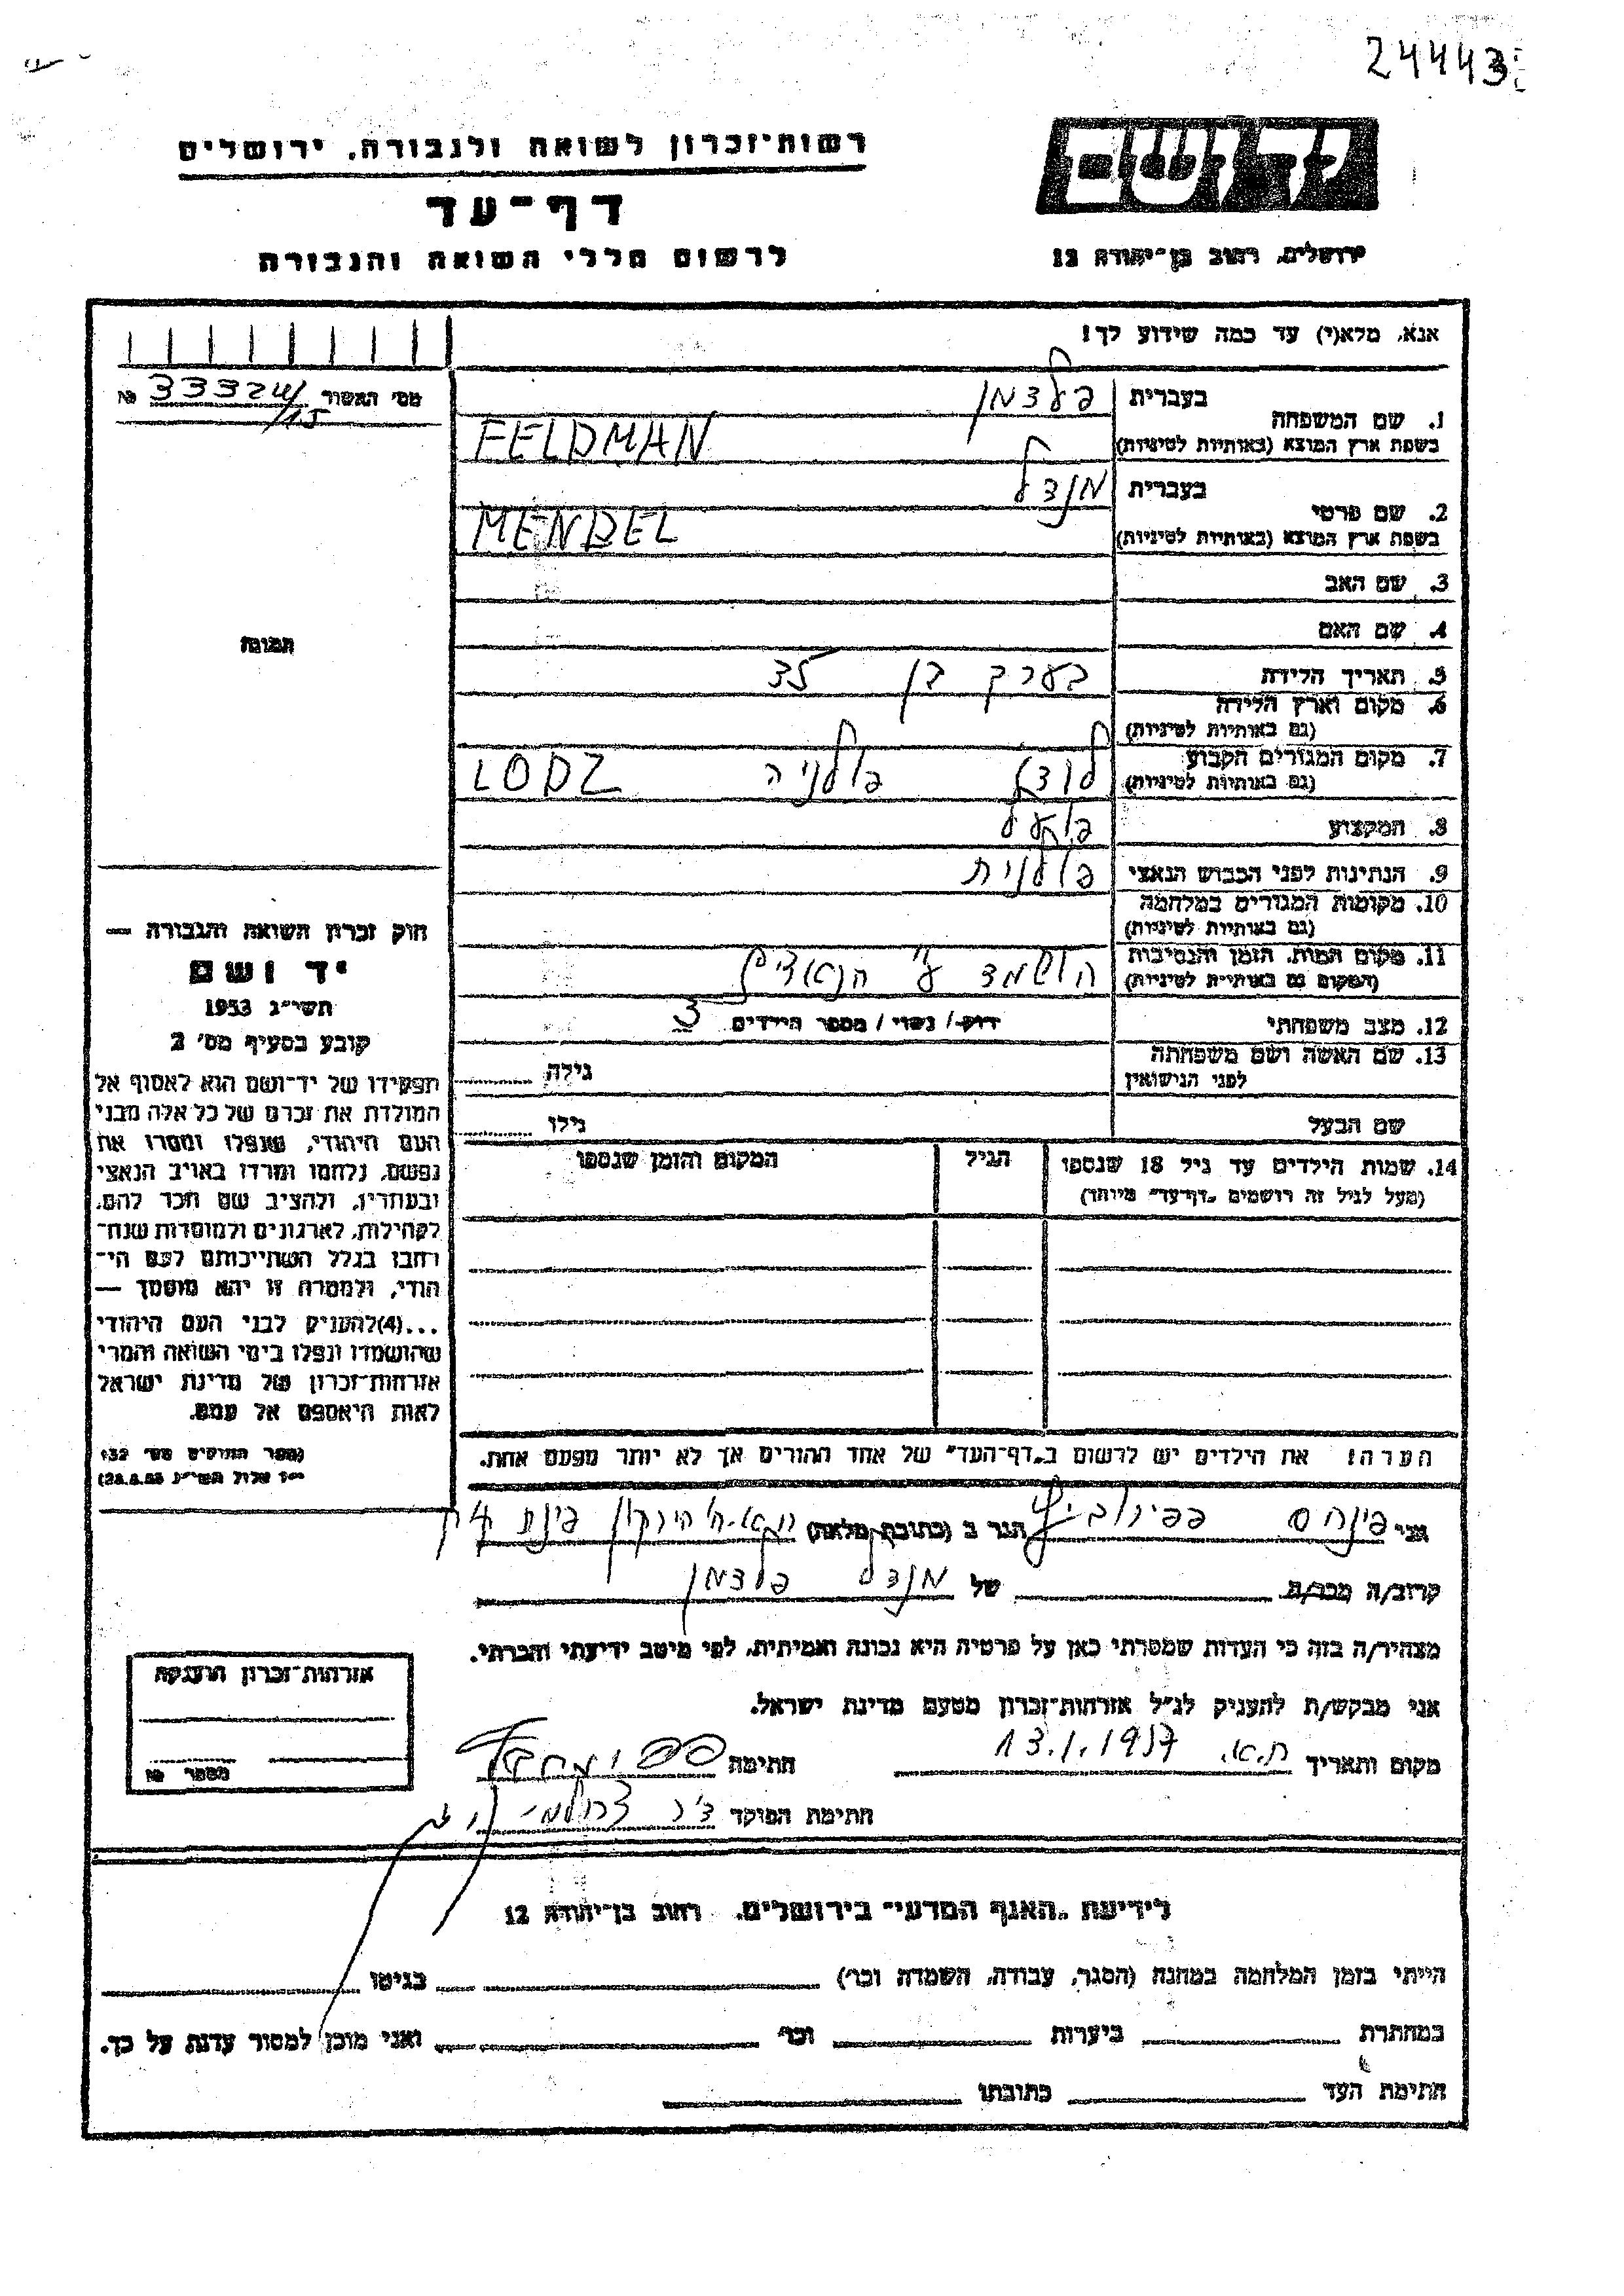 24443
רשות־זכרון לשואה ולגבורה, ירושלים
דף־עד
לרשום חללי השואה והגבורה
יד ושם
ירושלים, רחוב בן־יהודה 12
אנא, מלא(י) עד כמה שידוע לך!
מס׳ האשור 33324/15 №
1. שם המשפחה
בעברית פלדמן
בשפת ארץ המוצא (באותיות לטיניות) FELDMAN
2. שם פרטי
בעברית מנדל
בשפת ארץ המוצא (באותיות לטיניות) MENDEL
3. שם האב
4. שם האם
5. תאריך הלידה בערך בן 35
6. מקום וארץ הלידה
(גם באותיות לטיניות)
7. מקום המגורים הקבוע
(גם באותיות לטיניות) לודז׳ פולניה LODZ
8. המקצוע פועל
9. הנתינות לפני הכבוש הנאצי פולנית
10. מקומות המגורים במלחמה
(גם באותיות לטיניות)
11. מקום המות, הזמן והנסיבות
(המקום גם באותיות לטיניות) הושמד ע״י הנאצים
12. מצב משפחתי רווק / נשוי / מספר הילדים 3
13. שם האשה ושם משפחתה
לפני הנישואין גילה
שם הבעל גילו
14. שמות הילדים עד גיל 18 שנספו הגיל המקום והזמן שנספו
(מעל לגיל זה רושמים „דף־עד״ מיוחד)
הערה! את הילדים יש לרשום ב„דף־העד״ של אחד ההורים אך לא יותר מפעם אחת.
תמונה
חוק זכרון השואה והגבורה —
יד ושם
תשי״ג 1953
קובע בסעיף מס׳ 2
תפקידו של יד־ושם הוא לאסוף אל
המולדת את זכרם של כל אלה מבני
העם היהודי, שנפלו ומסרו את
נפשם, נלחמו ומרדו באויב הנאצי
ובעוזריו, ולהציב שם וזכר להם,
לקהילות, לארגונים ולמוסדות שנח־
רבו בגלל השתייכותם לעם הי־
הודי, ולמטרה זו יהא מוסמך —
...(4)להעניק לבני העם היהודי
שהושמדו ונפלו בימי השואה והמרי
אזרחות־זכרון של מדינת ישראל
לאות היאספם אל עמם.
(ספר החוקים מס׳ 132
י״ז אלול תשי״ג 28.8.53)
אני פינחס הגר ב (כתובת מלאה) ת״א. הירקון פינת
קרוב/ה מכר/ת של מנדל פלדמן
מצהיר/ה בזה כי העדות שמסרתי כאן על פרטיה היא נכונה ואמיתית, לפי מיטב ידיעתי והכרתי.
אני מבקש/ת להעניק לנ״ל אזרחות־זכרון מטעם מדינת ישראל.
מקום ותאריך ת.א. 13.1.1957 חתימה
חתימת הפוקד ד״ר
אזרחות־זכרון הוענקה
מספר №
לידיעת „האגף המדעי״ בירושלים, רחוב בן־יהודה 12
הייתי בזמן המלחמה במחנה (הסגר, עבודה, השמדה וכו׳) בגיטו
במחתרת ביערות וכו׳ ואני מוכן למסור עדות על כך.
חתימת העד כתובתו